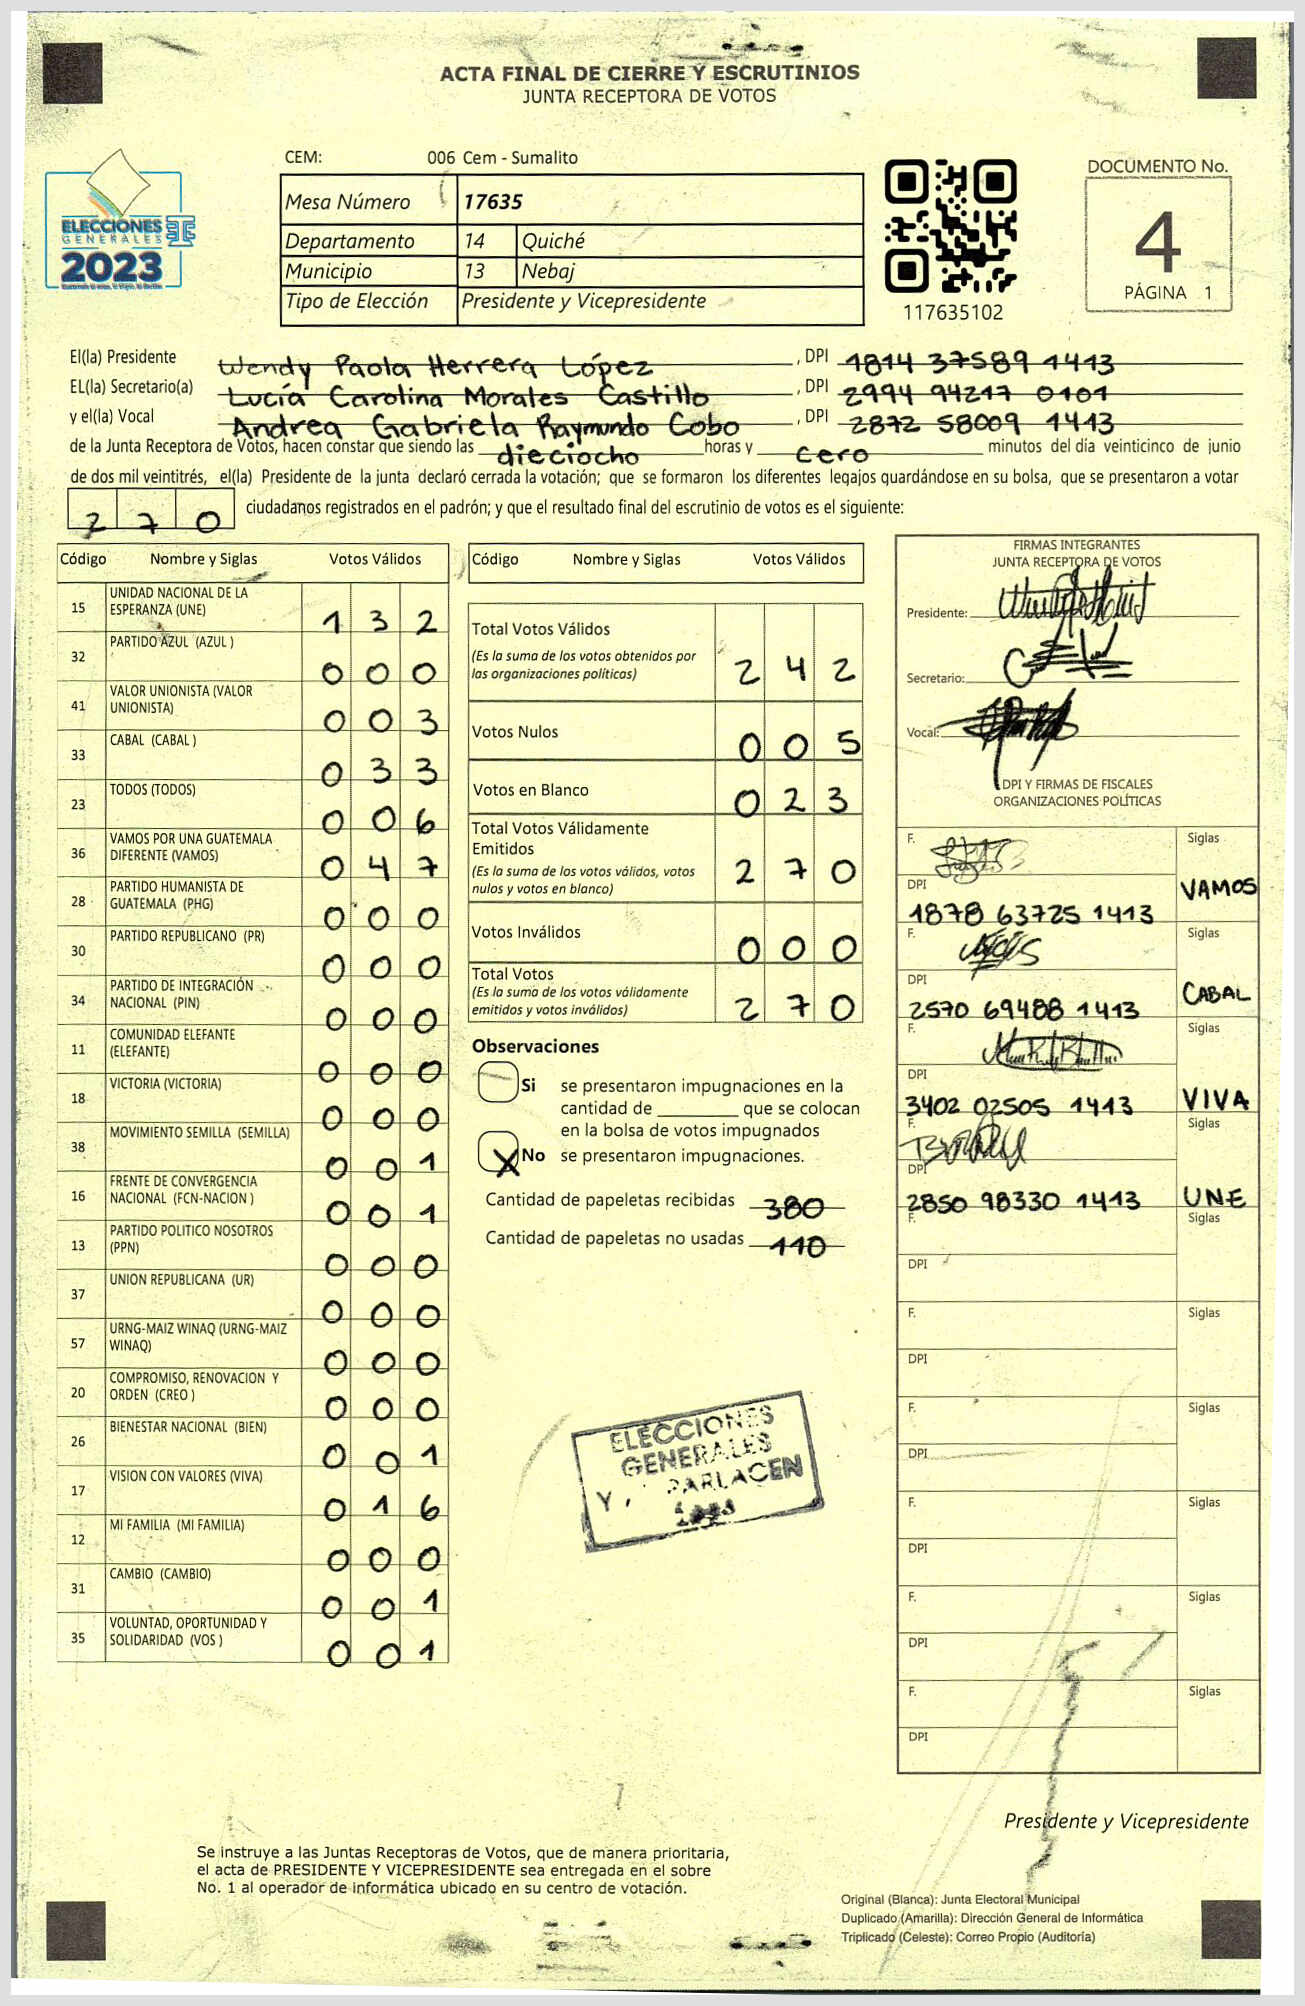 ACTA FINAL DE CIERRE Y ESCRUTINIOS
JUNTA RECEPTORA DE VOTOS
ELECCIONES
GENERALES
2023
CEM: 006 Cem - Sumalito
Mesa Número 17635
Departamento 14 Quiché
Municipio 13 Nebaj
Tipo de Elección Presidente y Vicepresidente
117635102
DOCUMENTO No.
4
PÁGINA 1
El(la) Presidente Wendy Paola Herrera López , DPI 1814 37589 1413
EL(la) Secretario(a) Lucía Carolina Morales Castillo , DPI 2994 94217 0101
y el(la) Vocal Andrea Gabriela Raymundo Cobo , DPI 2872 58009 1413
de la Junta Receptora de Votos, hacen constar que siendo las dieciocho horas y cero minutos del día veinticinco de junio
de dos mil veintitrés, el(la) Presidente de la junta declaró cerrada la votación; que se formaron los diferentes legajos guardándose en su bolsa, que se presentaron a votar
270 ciudadanos registrados en el padrón; y que el resultado final del escrutinio de votos es el siguiente:
Código Nombre y Siglas Votos Válidos
15 UNIDAD NACIONAL DE LA
ESPERANZA (UNE) 1 3 2
32 PARTIDO AZUL (AZUL ) 0 0 0
41 VALOR UNIONISTA (VALOR
UNIONISTA) 0 0 3
33 CABAL (CABAL ) 0 3 3
23 TODOS (TODOS) 0 0 6
36 VAMOS POR UNA GUATEMALA
DIFERENTE (VAMOS) 0 4 7
28 PARTIDO HUMANISTA DE
GUATEMALA (PHG) 0 0 0
30 PARTIDO REPUBLICANO (PR) 0 0 0
34 PARTIDO DE INTEGRACIÓN
NACIONAL (PIN) 0 0 0
11 COMUNIDAD ELEFANTE
(ELEFANTE) 0 0 0
18 VICTORIA (VICTORIA) 0 0 0
38 MOVIMIENTO SEMILLA (SEMILLA) 0 0 1
16 FRENTE DE CONVERGENCIA
NACIONAL (FCN-NACION ) 0 0 1
13 PARTIDO POLITICO NOSOTROS
(PPN) 0 0 0
37 UNION REPUBLICANA (UR) 0 0 0
57 URNG-MAIZ WINAQ (URNG-MAIZ
WINAQ) 0 0 0
20 COMPROMISO, RENOVACION Y
ORDEN (CREO ) 0 0 0
26 BIENESTAR NACIONAL (BIEN) 0 0 1
17 VISION CON VALORES (VIVA) 0 1 6
12 MI FAMILIA (MI FAMILIA) 0 0 0
31 CAMBIO (CAMBIO) 0 0 1
35 VOLUNTAD, OPORTUNIDAD Y
SOLIDARIDAD (VOS ) 0 0 1
Código Nombre y Siglas Votos Válidos
Total Votos Válidos
(Es la suma de los votos obtenidos por
las organizaciones políticas) 2 4 2
Votos Nulos 0 0 5
Votos en Blanco 0 2 3
Total Votos Válidamente
Emitidos
(Es la suma de los votos válidos, votos
nulos y votos en blanco) 2 7 0
Votos Inválidos 0 0 0
Total Votos
(Es la suma de los votos válidamente
emitidos y votos inválidos) 2 7 0
Observaciones
Si se presentaron impugnaciones en la
cantidad de ________ que se colocan
en la bolsa de votos impugnados
X No se presentaron impugnaciones.
Cantidad de papeletas recibidas 380
Cantidad de papeletas no usadas 110
ELECCIONES
GENERALES
Y PARLACEN
FIRMAS INTEGRANTES
JUNTA RECEPTORA DE VOTOS
Presidente:
Secretario:
Vocal:
DPI Y FIRMAS DE FISCALES
ORGANIZACIONES POLÍTICAS
F. Siglas
DPI 1878 63725 1413 VAMOS
F. Siglas
DPI 2570 69488 1413 CABAL
F. Siglas
DPI 3402 02505 1413 VIVA
F. Siglas
DPI 2850 98330 1413 UNE
F. Siglas
DPI
F. Siglas
DPI
F. Siglas
DPI
F. Siglas
DPI
F. Siglas
DPI
F. Siglas
DPI
Presidente y Vicepresidente
Se instruye a las Juntas Receptoras de Votos, que de manera prioritaria,
el acta de PRESIDENTE Y VICEPRESIDENTE sea entregada en el sobre
No. 1 al operador de informática ubicado en su centro de votación.
Original (Blanca): Junta Electoral Municipal
Duplicado (Amarilla): Dirección General de Informática
Triplicado (Celeste): Correo Propio (Auditoría)